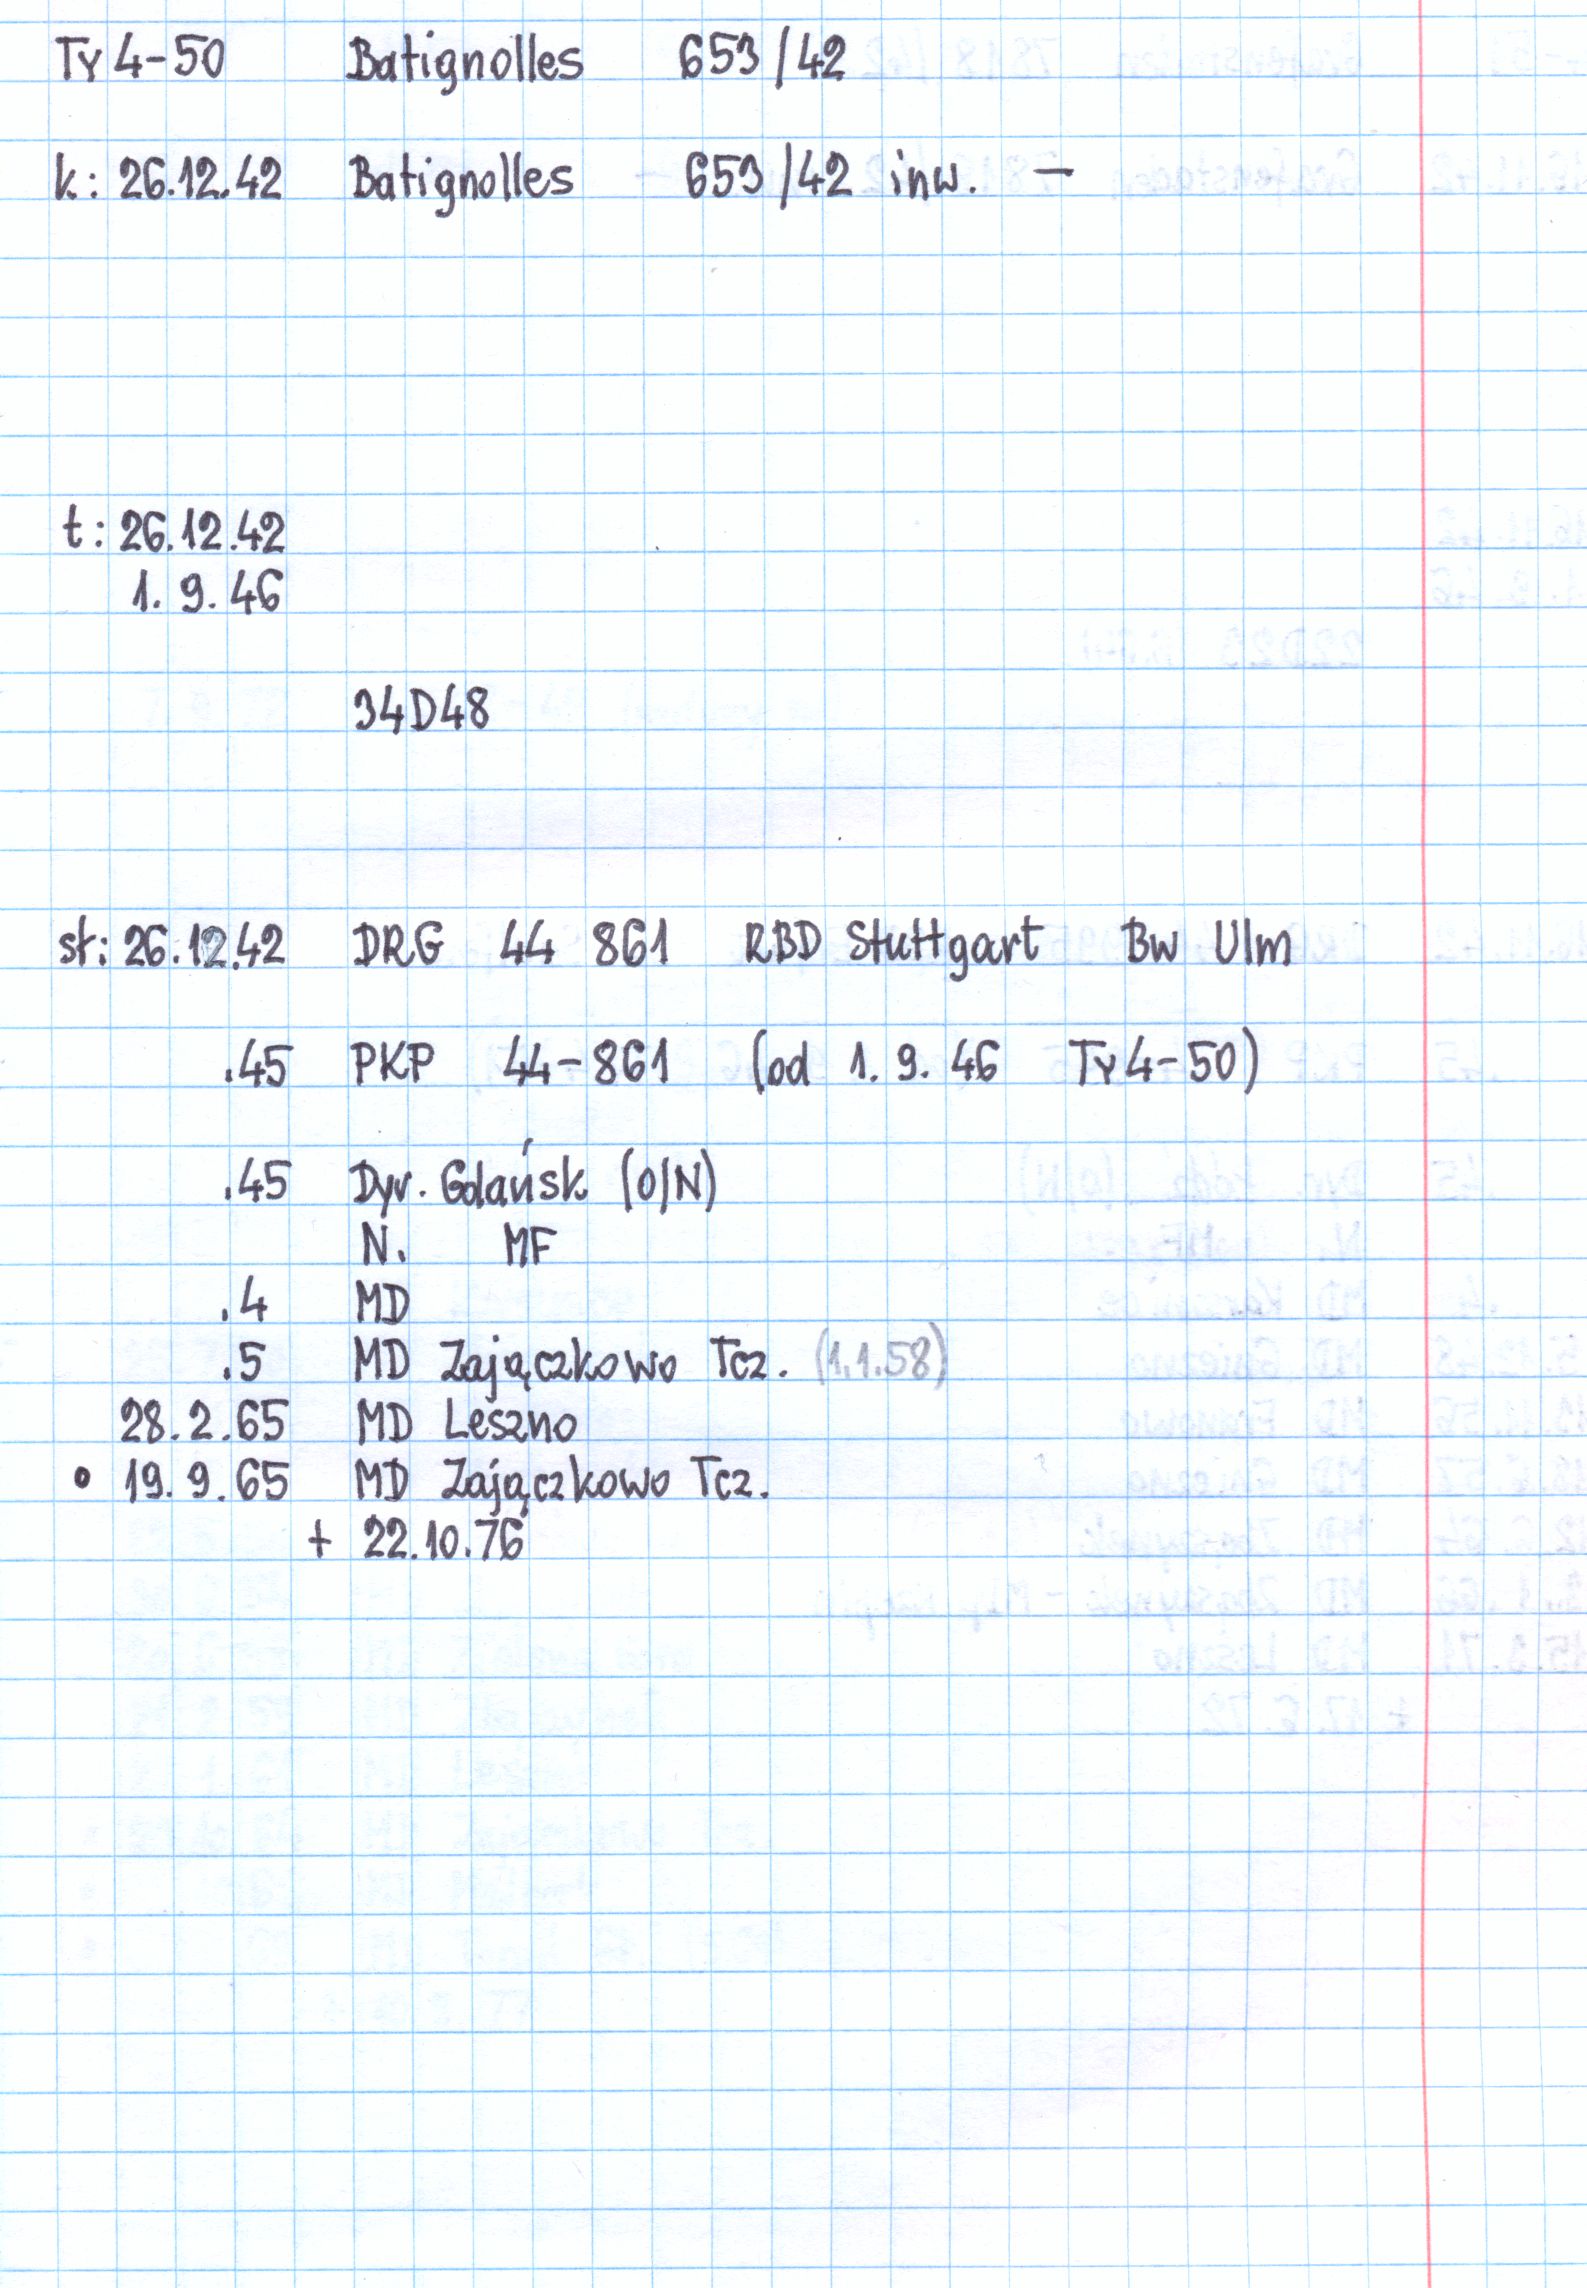 Ty4-50 Batignolles 653/42
k: 26.12.42 Batignolles 653/42 inw. —
t: 26.12.42
1. 9. 46
34D48
st: 26.12.42 DRG 44 861 RBD Stuttgart Bw Ulm
.45 PKP 44-861 (od 1. 9. 46 Ty4-50)
.45 Dyr. Gdańsk (O/N)
N. MF
.4 MD
.5 MD Zajączkowo Tcz. (1.1.58)
28. 2. 65 MD Leszno
• 19. 9. 65 MD Zajączkowo Tcz.
+ 22.10.76